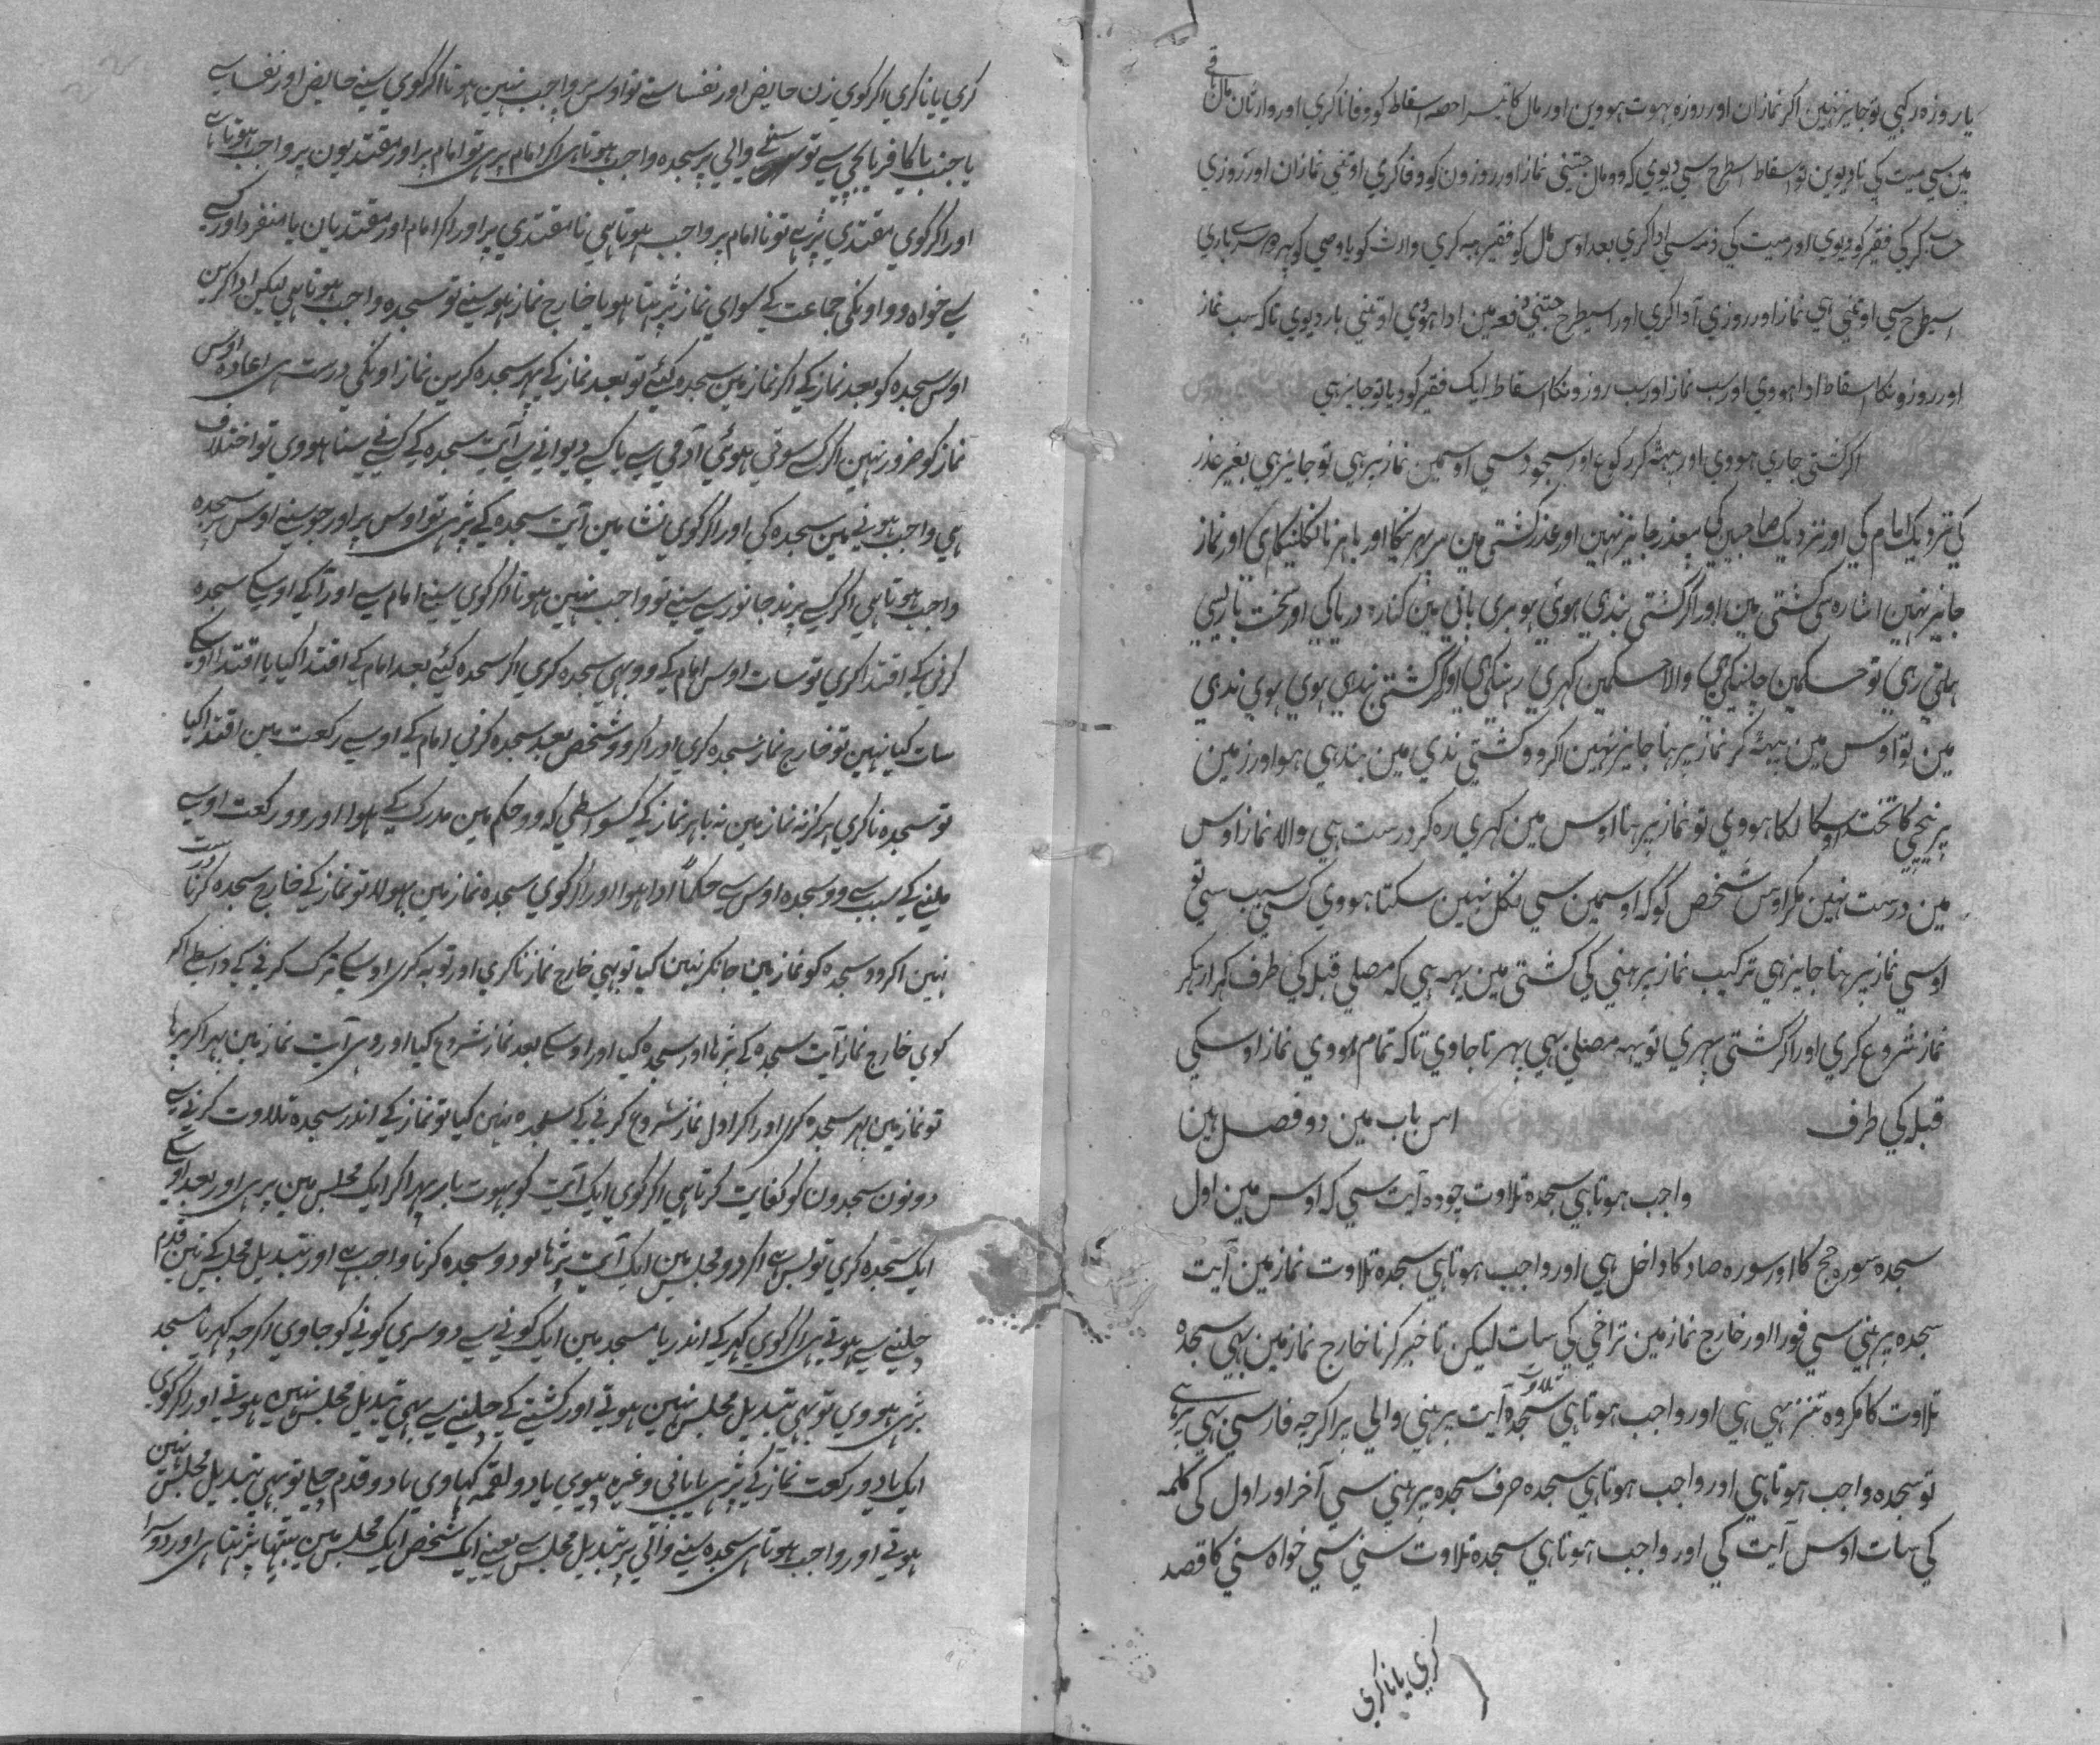 یا روزه رکهی تو جایز نہین اکر نمازان اور روزه بہوت هووین اور مال کا تیسرا حصه اسقاط کو وفا ناکری اور وارثان مال باقی
مین سی میت کی نا دیوین تو اسقاط اسطرح سی دیوی که وو مال جتنی نماز اور روزون کو وفا کری اوتنی نمازان اور روزی
حساب کرکی فقیر کو دیوی اور میت کی ذمه سی ادا کری بعد اوس مال کو فقیر هبه کری وارث کو یا وصی کو پهر دوسری باری
اسیطرح سی اوتنی هی نماز اور روزی ادا کری اور اسیطرح جتنی دفعه مین ادا هووی اوتنی بار دیوی تاکه سب نماز
اور روزونکا اسقاط ادا هووی اور سب نماز اور سب روزونکا اسقاط ایک فقیر کو دیا تو جایز هی
اکر کشتی جاری هووی اور بیٹهه کر رکوع اور سجود سی اوسمین نماز پرهی تو جایز هی بغیر عذر
کی نزدیک امام کی اور نزدیک صاحبین کی بیعذر جایز نہین اور عذر کشتی مین سر پهرنیکا اور باهر نا نکلنیکا هی اور نماز
جایز نہین اشاره سی کشتی مین اور اکر کشتی بندی هوئی هو بری پانی مین کناره دریا کی اور سخت باریسی
هلتی رهی تو حکمین چلنیکی هی والا حکمین کهری رهنیکی هی اور اکر کشتی بندی هوی هوی ندی
مین تو اوس مین بیٹهه کر نماز پرهنا جایز نہین اکر وو کشتی ندی مین بندهی هو اور زمین
پر نیچی کا تخته اوسکا لکا هووی تو نماز پرهنا اوس مین کهری ره کر درست هی والا نماز اوس
مین درست نہین مکر اوس شخص کو که اوسمین سی نکل نہین سکتا هووی کسی سبب سی تو
اوسی نماز پرهنا جایز هی ترکیب نماز پرهنی کی کشتی مین یہه هی که مصلی قبله کی طرف کهرا رهکر
نماز شروع کری اور اکر کشتی پهری تو یہه مصلی بهی پهرتا جاوی تاکه تمام هووی نماز اوسکی
قبله کی طرف اس باب مین دو فصل هین
واجب هوتا هی سجده تلاوت چوده آیت سی که اوس مین اول
سجده سوره حج کا اور سوره صاد کا داخل هی اور واجب هوتا هی سجده تلاوت نماز مین آیت
سجده پرهنی سی فورا اور خارج نماز مین تراخی کی سات لیکن تاخیر کرنا خارج نماز مین بهی سجده
تلاوت کا مکروه تنزیہی هی اور واجب هوتا هی سجده تلاوت آیت پرهنی والی پر اکرچه فارسی بهی پرهی
تو سجده واجب هوتا هی اور واجب هوتا هی سجده حرف سجده پرهنی سی آخر اور اول کی کلمه
کی سات اوس آیت کی اور واجب هوتا هی سجده تلاوت سننی سی خواه سننی کا قصد
کری یا ناکری
کری یا ناکری اکر کوی زن حایض اور نفسا سنے تو اوس پر واجب نہین هوتا اکر کوی سنے حایض اور نفسا سے
یا جنب یا کافر یا بچے سے تو سننے والے پر سجده واجب هوتا هی اکر امام پرهی تو امام پر اور مقتدیون پر واجب هوتا هے
اور اکر کوی مقتدی پڑهے تو نا امام پر واجب هوتا هی نا مقتدی پر اور اکر امام اور مقتدیان یا منفرد اور کسے
سے خواه وو اونکی جماعت کے سوای نماز پڑهتا هو یا خارج نماز هو سنے تو سجده واجب هوتا هی لیکن ادا کرین
اوس سجده کو بعد نماز کے اکر نماز مین سجده کئے تو بعد نماز کے پهر سجده کرین نماز اونکی درست هی اعاده اوس
نماز کو ضرور نہین اکر کسے سوتے هوئے آدمی سے یا کسے دیوانے سے آیت سجده کے کسے نے سنا هووی تو اختلاف
هی واجب هونے مین سجده کی اور اکر کوی نشا مین آیت سجده کے پڑهی تو اوس پر اور جو سنے اوس پر سجده
واجب هوتا هی اکر کسے پرند جانور سے سنے تو واجب نہین هوتا اکر کوی سنے امام سے اور آکے اوسکے سجده
کرنیکے اقتدا کری تو سات اوس امام کے وو بهی سجده کری اکر سجده کئے بعد امام کے اقتدا کیا یا اقتدا اوسکے
سات کیا نہین تو خارج نماز سجده کری اور اکر وو شخص بعد سجده کرنے امام کے اوسے رکعت مین اقتدا کیا
تو سجده نا کری هرکز نه نماز مین نه باهر نماز کے کسواسطی که وو حکم مین مدرک کے هوا اور وو رکعت اوسے
ملنے کے سبب سے وو سجده اوس سے حکما ادا هوا اور اکر کوی سجده نماز مین بهولا تو نماز کے خارج سجده کرنا درست
نہین اکر وو سجده کو نماز مین جانکر نہین کیا تو بهی خارج نماز نا کری اور توبه کری اوسکے ترک کرنے کے واسطے اکر
کوی خارج نماز آیت سجده کے پڑها اور سجده کیا اور اوسکے بعد نماز شروع کیا اور وهی آیت نماز مین پهرا کر پرها
تو نماز مین پهر سجده کری اور اکر اول نماز شروع کرنے کے سجده نہین کیا تو نماز کے اندر سجده تلاوت کرنے سے
دونون سجدون کو کفایت کرتا هی اکر کوی ایک آیت کو بہوت بار پهرا کر ایک مجلس مین پرهی اور بعد اوسکے
ایک سجده کری تو بس هے اکر دو مجلس مین ایک آیت پڑها تو دو سجده کرنا واجب هے اور تبدیل مجلس کے تین قدم
چلنے سے هوتے هی اکر کوی کهر کے اندر یا مسجد مین ایک کونے سے دوسری کونے کو جاوی اکرچه کهر یا مسجد
بڑی هووی تو بهی تبدیل مجلس نہین هوتے اور کشتے کے چلنے سے بهی تبدیل مجلس نہین هوتے اور اکر کوی
ایک یا دو رکعت نماز کے پڑهی یا پانی وغیره پیوی یا دو لقمه کهاوی یا دو قدم چلے تو بهی تبدیل مجلس نہین
هوتے اور واجب هوتا هی سجده سننے والے پر تبدیل مجلس سے یعنے ایک شخص ایک مجلس مین بیٹها پڑهتا هی اور دوسرا